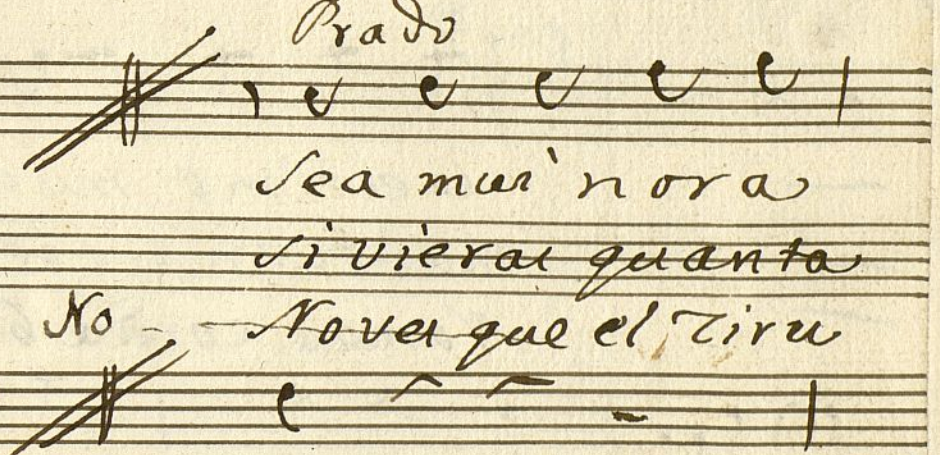 Prado
Sea mui nora
si vieras quanta
No - - Noves que el Ziru